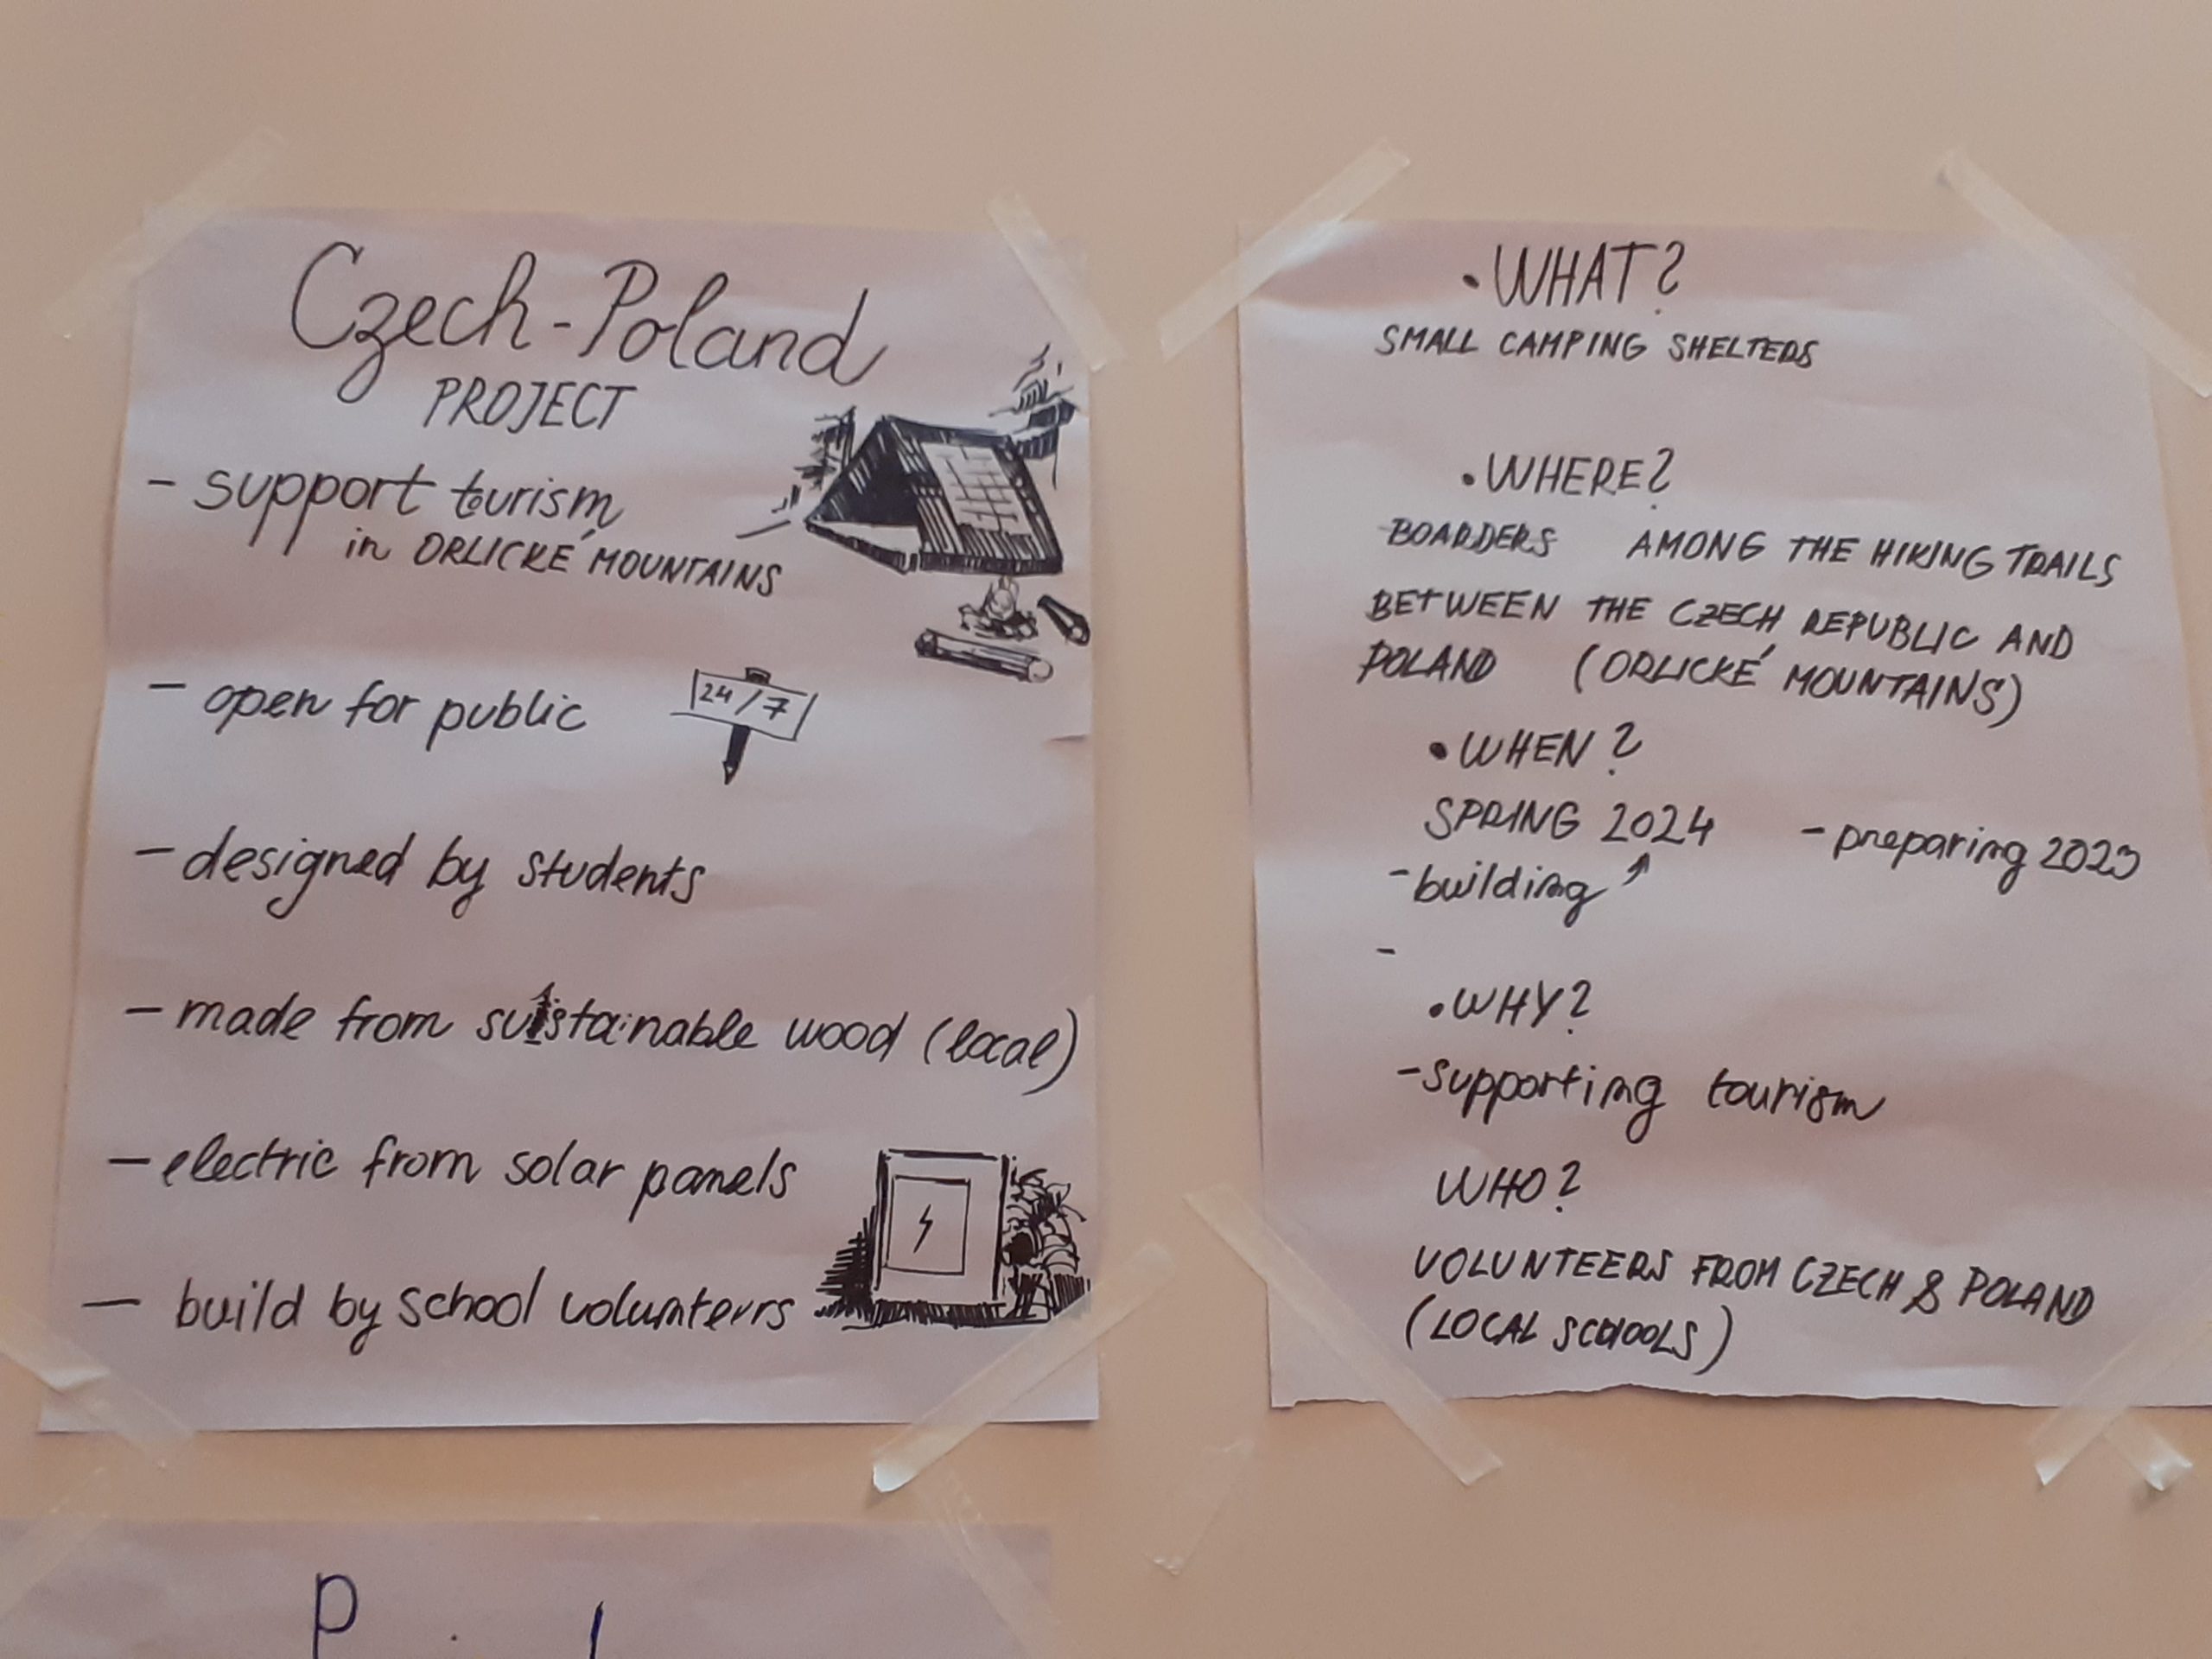 Czech-Poland
PROJECT
- support tourism
in ORLICKÉ MOUNTAINS
- open for public
24/7
- designed by students
- made from sustainable wood (local)
- electric from solar panels
- build by school volunteers
• WHAT?
SMALL CAMPING SHELTERS
• WHERE?
BOARDERS AMONG THE HIKING TRAILS
BETWEEN THE CZECH REPUBLIC AND
POLAND (ORLICKÉ MOUNTAINS)
• WHEN?
SPRING 2024 - preparing 2023
- building ↑
-
• WHY?
- supporting tourism
WHO?
VOLUNTEERS FROM CZECH & POLAND
(LOCAL SCHOOLS)